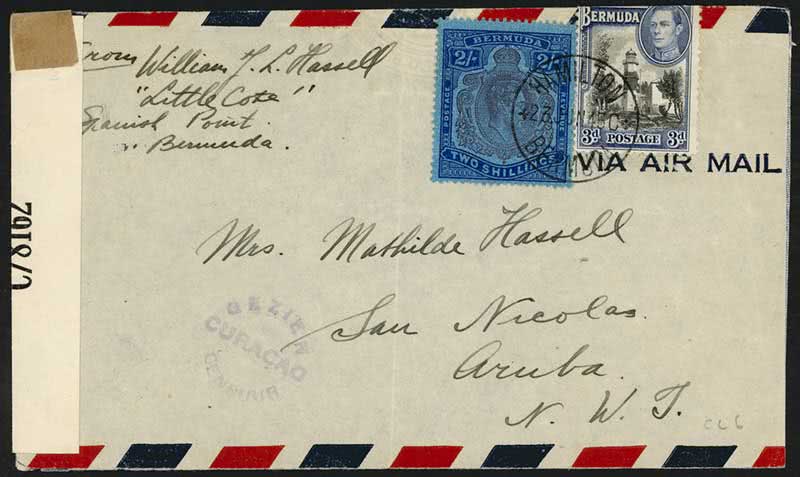 From William J. L. Hassell
"Little Cose"
Spanish Point.
Bermuda.
BERMUDA
2/- 2/-
POSTAGE
REVENUE
TWO SHILLINGS
BERMUDA
3d POSTAGE 3d
HAMILTON
VIA AIR MAIL
Mrs. Mathilde Hassell
San Nicolas.
Aruba.
N. W. I.
C/8162
GEZIEN
CURAÇAO
CENSUUR
CL6